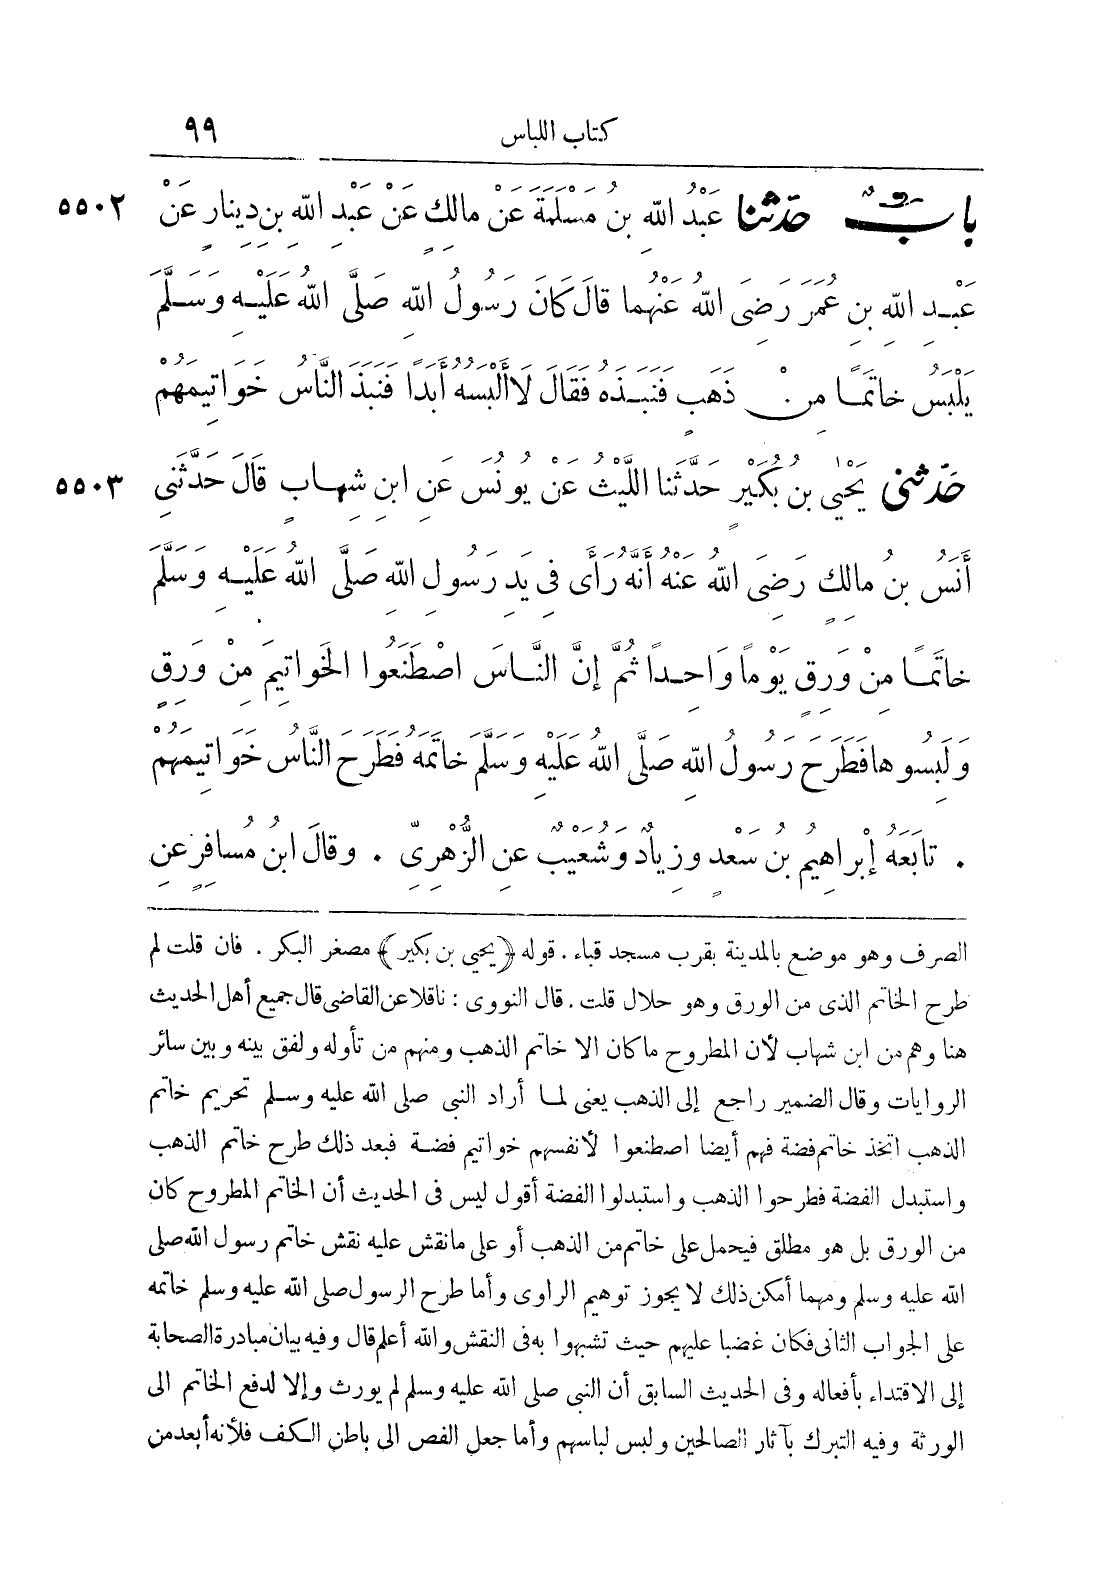 كتاب اللباس ٩٩
بابٌ حَدَّثنا عَبْدُ اللهِ بنُ مَسْلَمَةَ عَنْ مالِكٍ عَنْ عَبْدِ اللهِ بنِ دِينارٍ عَنْ ٥٥٠٢
عَبْدِ اللهِ بنِ عُمَرَ رَضِىَ اللهُ عَنْهُما قالَ كانَ رَسُولُ اللهِ صَلَّى اللهُ عَلَيْهِ وَسَلَّمَ
يَلْبَسُ خاتَمًا مِنْ ذَهَبٍ فَنَبَذَهُ فَقالَ لاَ أَلْبَسُهُ أَبَدًا فَنَبَذَ النَّاسُ خَوَاتِيمَهُمْ
حَدَّثنى يَحْيَى بنُ بُكَيْرٍ حَدَّثَنا اللَّيْثُ عَنْ يُونُسَ عَنِ ابنِ شِهابٍ قالَ حَدَّثَنِى ٥٥٠٣
أَنَسُ بنُ مالِكٍ رَضِىَ اللهُ عَنْهُ أَنَّهُ رَأَى فِى يَدِ رَسُولِ اللهِ صَلَّى اللهُ عَلَيْهِ وَسَلَّمَ
خاتَمًا مِنْ وَرِقٍ يَوْمًا وَاحِدًا ثُمَّ إِنَّ النَّاسَ اصْطَنَعُوا الخَوَاتِيمَ مِنْ وَرِقٍ
وَلَبِسُوها فَطَرَحَ رَسُولُ اللهِ صَلَّى اللهُ عَلَيْهِ وَسَلَّمَ خاتَمَهُ فَطَرَحَ النَّاسُ خَوَاتِيمَهُمْ
. تابَعَهُ إِبْرَاهِيمُ بنُ سَعْدٍ وزِيادٌ وَشُعَيْبٌ عنِ الزُّهْرِىِّ . وقالَ ابنُ مُسافِرٍ عنِ
الصرف وهو موضع بالمدينة بقرب مسجد قباء . قوله ﴿يحيى بن بكير﴾ مصغر البكر . فان قلت لم
طرح الخاتم الذى من الورق وهو حلال قلت . قال النووى : ناقلا عن القاضى قال جميع أهل الحديث
هنا وهم من ابن شهاب لأن المطروح ما كان الا خاتم الذهب ومنهم من تأوله ولفق بينه وبين سائر
الروايات وقال الضمير راجع إلى الذهب يعنى لما أراد النبى صلى الله عليه وسلم تحريم خاتم
الذهب اتخذ خاتم فضة فهم أيضا اصطنعوا لأنفسهم خواتيم فضة فبعد ذلك طرح خاتم الذهب
واستبدل الفضة فطرحوا الذهب واستبدلوا الفضة أقول ليس فى الحديث أن الخاتم المطروح كان
من الورق بل هو مطلق فيحمل على خاتم من الذهب أو على مانقش عليه نقش خاتم رسول الله صلى
الله عليه وسلم ومهما أمكن ذلك لا يجوز توهيم الراوى وأما طرح الرسول صلى الله عليه وسلم خاتمه
على الجواب الثانى فكان غضبا عليهم حيث تشبهوا به فى النقش والله أعلم قال وفيه بيان مبادرة الصحابة
إلى الاقتداء بأفعاله وفى الحديث السابق أن النبى صلى الله عليه وسلم لم يورث وإلا لدفع الخاتم الى
الورثة وفيه التبرك بآثار الصالحين ولبس لباسهم وأما جعل الفص الى باطن الكف فلأنه أبعد من